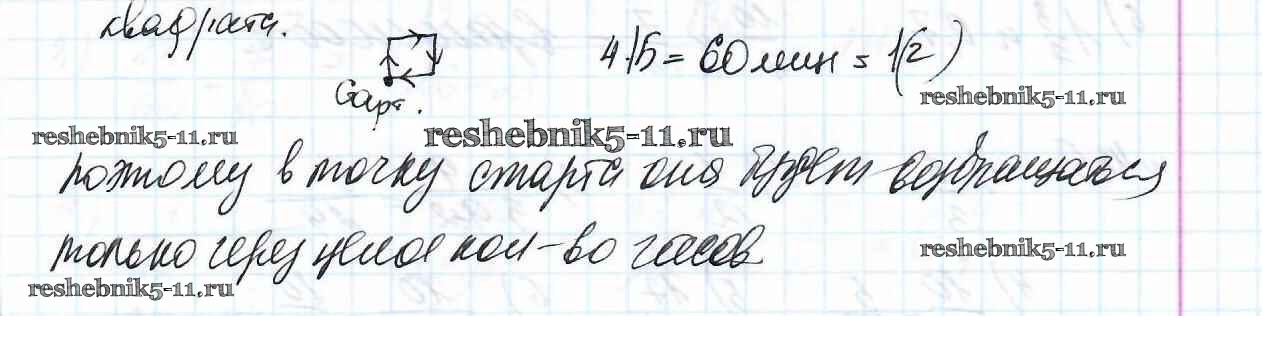 квадрата.
4·15 = 60 мин = 1(г)
Старт.
reshebnik5-11.ru
reshebnik5-11.ru
reshebnik5-11.ru
поэтому в точку старта она будет возвращаться
только через целое кол-во часов
reshebnik5-11.ru
reshebnik5-11.ru